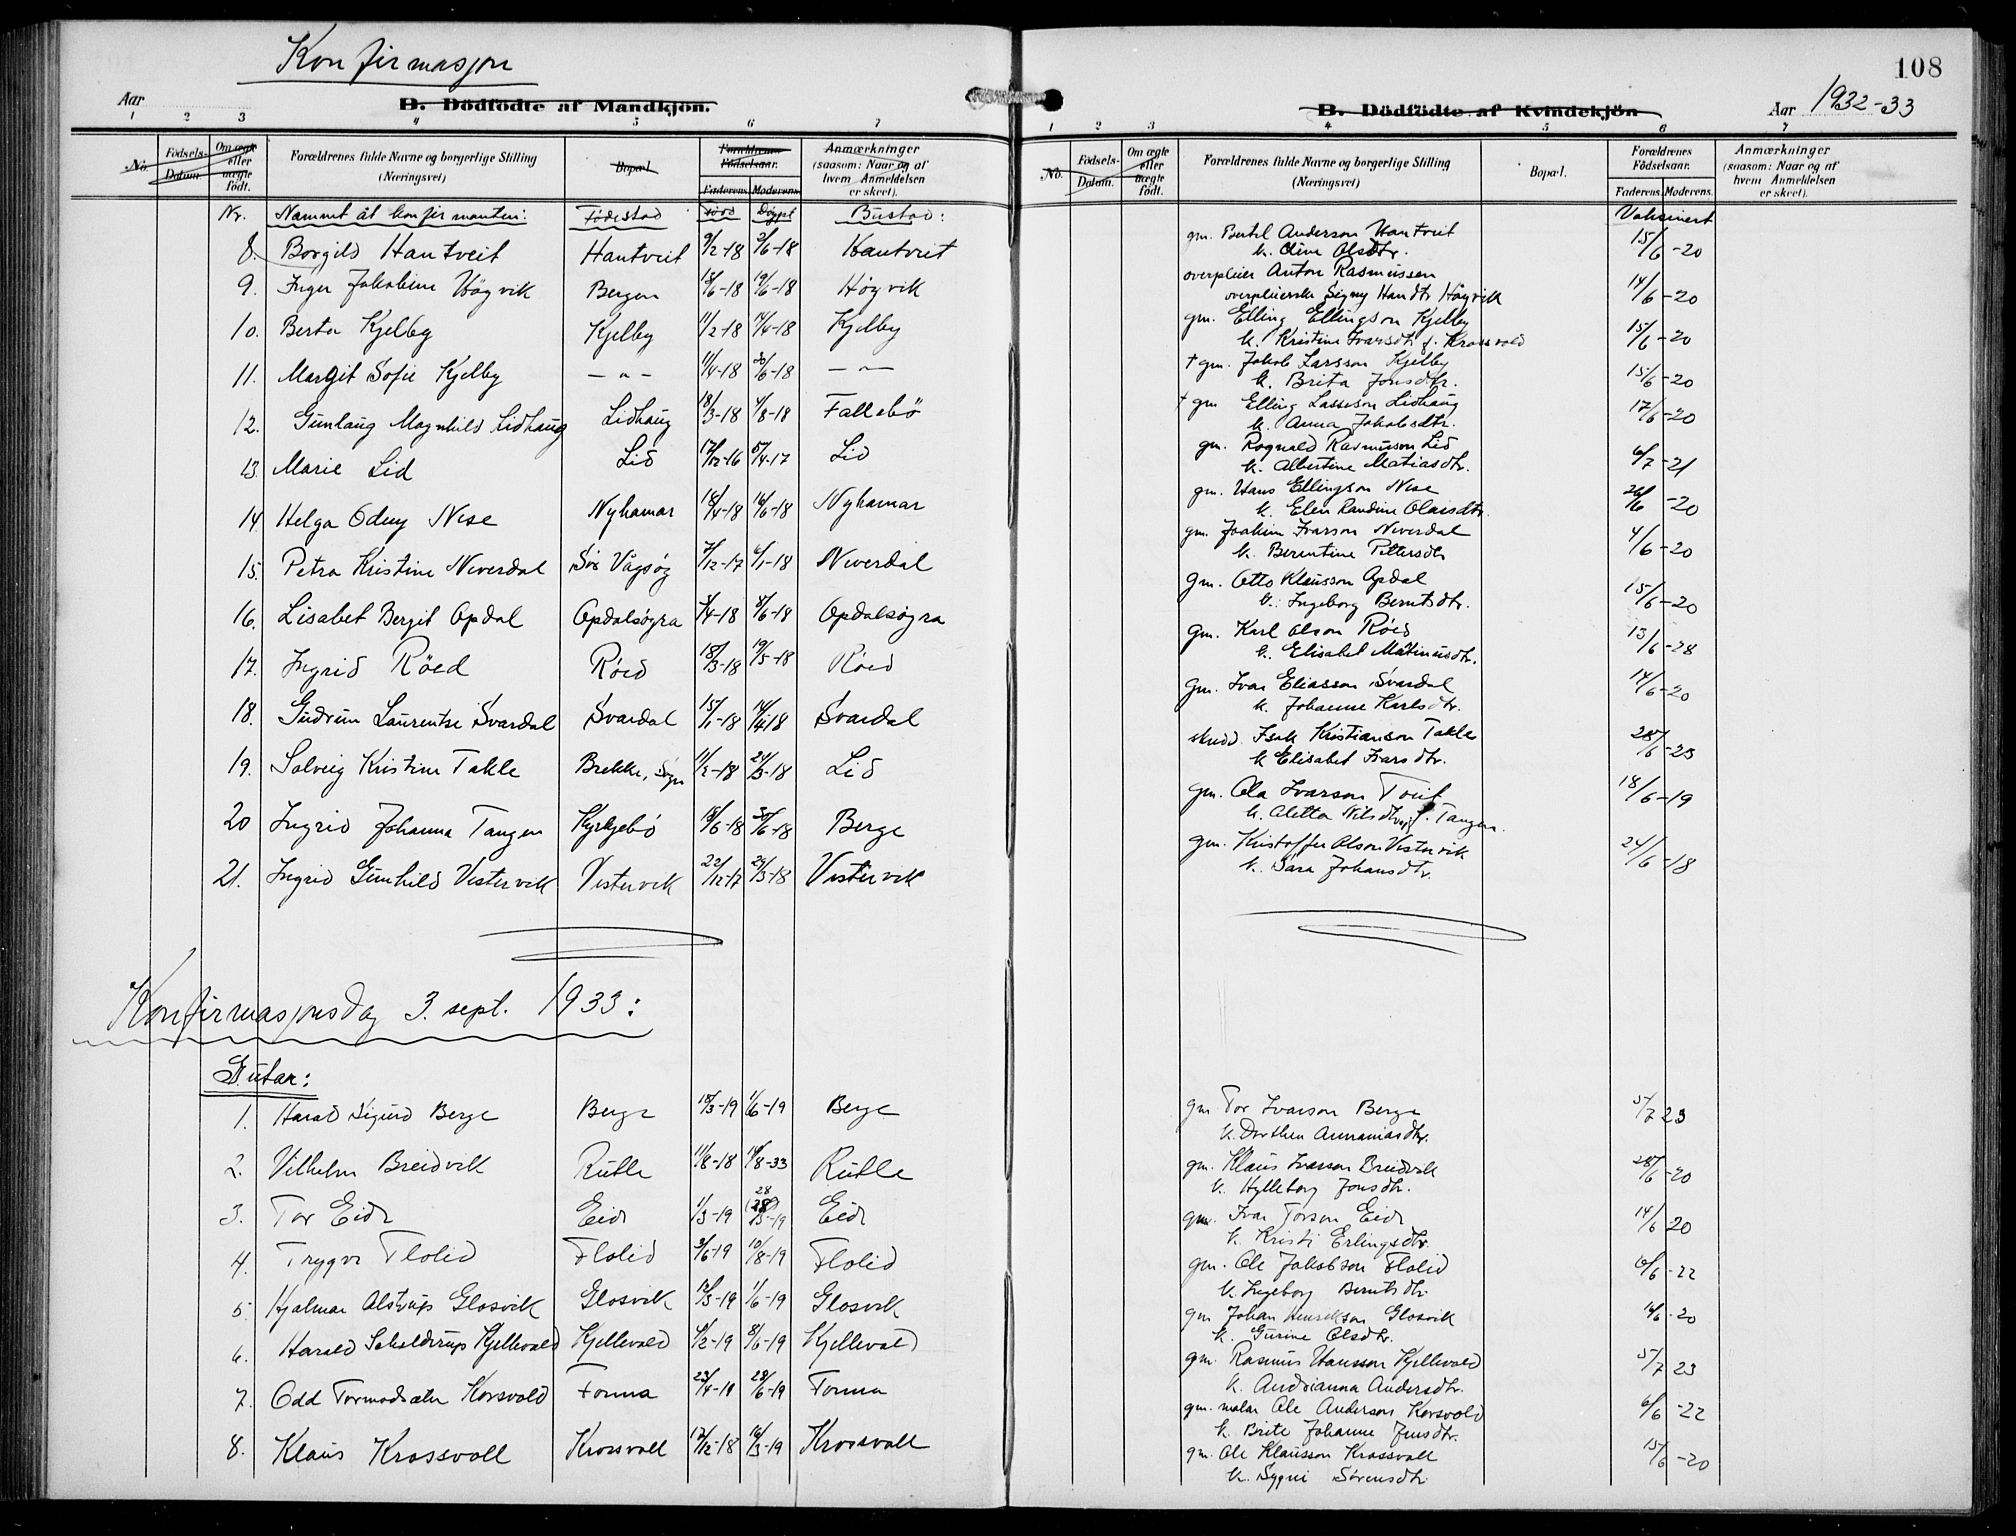 Konfirmasjon
108
Aar
B. Dödfödte af Mandkjön.
B. Dödfödte af Kvindekjön
Aar 1932-33
1 2 3 4 5 6 7
1 2 3 4 5 6 7
No. Födsels-Datum. Om ægte eller uægte födt. Forældrenes fulde Navne og borgerlige Stilling (Næringsvei) Bopæl. Forældrenes Födselsaar. Faderens. Moderens. Anmærkninger (saasom: Naar og af hvem Anmeldelsen er skeet).
No. Födsels-Datum. Om ægte eller uægte födt. Forældrenes fulde Navne og borgerlige Stilling (Næringsvei) Bopæl. Forældrenes Födselsaar. Faderens. Moderens. Anmærkninger (saasom: Naar og af hvem Anmeldelsen er skeet).
Nr. Namnet åt konfirmanten: Fødestad Fødd Døypt Bustad: Vaksinert
8. Borgild Hantveit Hantveit 9/2-18 2/6-18 Hantveit gm. Bertel Anderson Hantveit 15/6-20
k. Oline Olsdtr.
9. Inger Jakobine Høgvik Bergen 19/6-18 Høgvik overpleier Anton Rasmussen 14/6-20
overpleierske Signy Hansdtr Høgvik
10. Berta Kjelby Kjelby 11/2-18 14/4-18 Kjelby gm. Elling Ellingson Kjelby 15/6-20
k. Kristine Ivarsdtr f. Krossvold
11. Margit Sofie Kjelby — " — 11/4-18 30/6-18 — " — † gm. Jakob Larsson Kjelby 15/6-20
k. Brita Jonsdtr.
12. Gunlaug Magnhild Lidhaug Lidhaug 18/3-18 4/8-18 Fallebø † gm Elling Lasseson Lidhaug 17/6-20
k. Anna Jakobsdtr.
13. Marie Lid Lid 17/12-16 5/4-17 Lid gm. Rognald Rasmusson Lid 6/7-21
k. Albertine Matiasdtr.
14. Helga Odny Nese Nyhamar 18/4-18 16/6-18 Nyhamar gm. Hans Ellingson Nese 26/6-20
k. Elen Randine Olaisdtr.
15. Petra Kristine Neverdal Sør Vågsøy 7/12-17 6/1-18 Neverdal gm. Joakim Ivarson Neverdal 4/6-20
k. Berentine Pettersdtr
16. Lisabet Bergit Opdal Opdalsøyra 8/6-18 Opdalsøyra gm. Otto Klausson Opdal 15/6-20
k. Ingeborg Berntsdtr.
17. Ingrid Røed Røed 18/3-18 19/5-18 Røed gm. Karl Olson Røed 13/6-28
k. Elisabet Martinusdtr.
18. Gudrun Laurentse Svardal Svardal 15/1-18 14/4-18 Svardal gm. Ivar Eliasson Svardal 14/6-20
k. Johanne Karlsdtr.
19. Solveig Kristine Takle Brekke, Sogn 11/2-18 24/3-18 Lid skredd. Isak Kristianson Takle 28/6-23
k Elisabet Ivarsdtr.
20 Ingrid Johanna Tangen Kyrkjebø 18/6-18 30/6-18 Berge gm. Ola Ivarson Tveit 18/6-19
k. Aletta Nilsdtr f. Tangen.
21. Ingrid Gunhild Vestervik Vestervik 22/12-17 29/3-18 Vestervik gm. Kristoffer Olson Vestervik 24/6-18
k. Sara Johansdtr.
Konfirmasjonsdag 3. sept. 1933:
Gutar:
1. Harald Sigurd Berge Berge 18/3-19 1/6-19 Berge gm Tor Ivarson Berge 5/7 23
k. Dorthea Annaniasdtr.
2. Vilhelm Breidvik Rutle 11/8-18 14/8-33 Rutle gm. Klaus Ivarson Breidvik 28/6-20
k. Hylleborg Jonsdtr.
3. Tor Eide Eide 1/3-19 28 Eide gm. Ivar Torson Eide 14/6 20
k. Kristi Erlingsdtr.
4. Trygve Flolid Flolid 3/6-19 10/8-19 Flolid gm. Ole Jakobson Flolid 6/6-22
k. Ingeborg Berntsdtr
5. Hjalmar Alstrup Glosvik Glosvik 1/6-19 Glosvik gm Johan Henrikson Glosvik 14/6-20
k. Gurine Olsdtr.
6. Harald Schelderup Kjellevold Kjellevold 4/2-19 8/6-19 Kjellevold gm. Rasmus Hansson Kjellevold 5/7 23
k. Andrianna Andersdtr.
7. Odd Tormodsæter Korsvold Tonna 23/4-19 28/6-19 Tonna gm. malar Ole Anderson Korsvold 6/6-22
k. Brite Johanne Jensdtr.
8. Klaus Krossvoll Krossvoll 17/12-18 16/3-19 Krossvoll gm. Ole Klausson Krossvoll 15/6-20
k. Sygni Sørensdtr